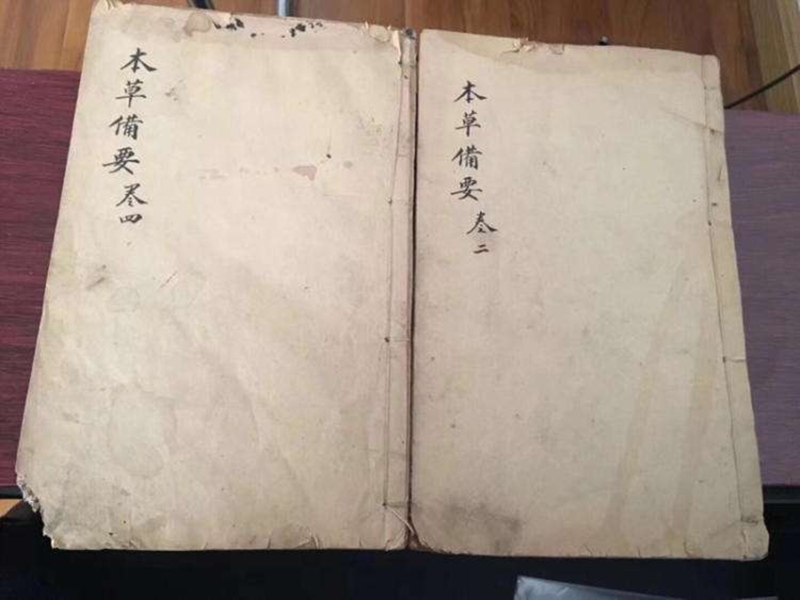 本草備要 卷四
本草備要 卷二